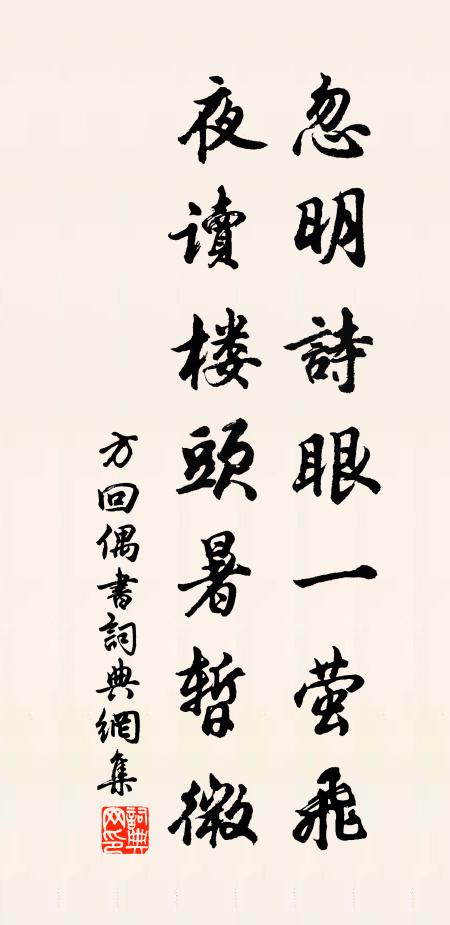 忽明詩眼一萤飛
夜读楼頭暑暫微
方回偶書詞典網集
詞典
网印